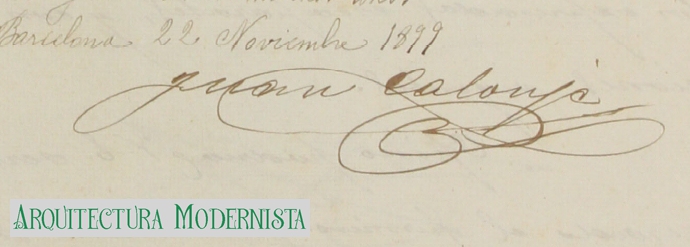 Barcelona 22 Noviembre 1899
Juan Calonje
ARQUITECTURA MODERNISTA